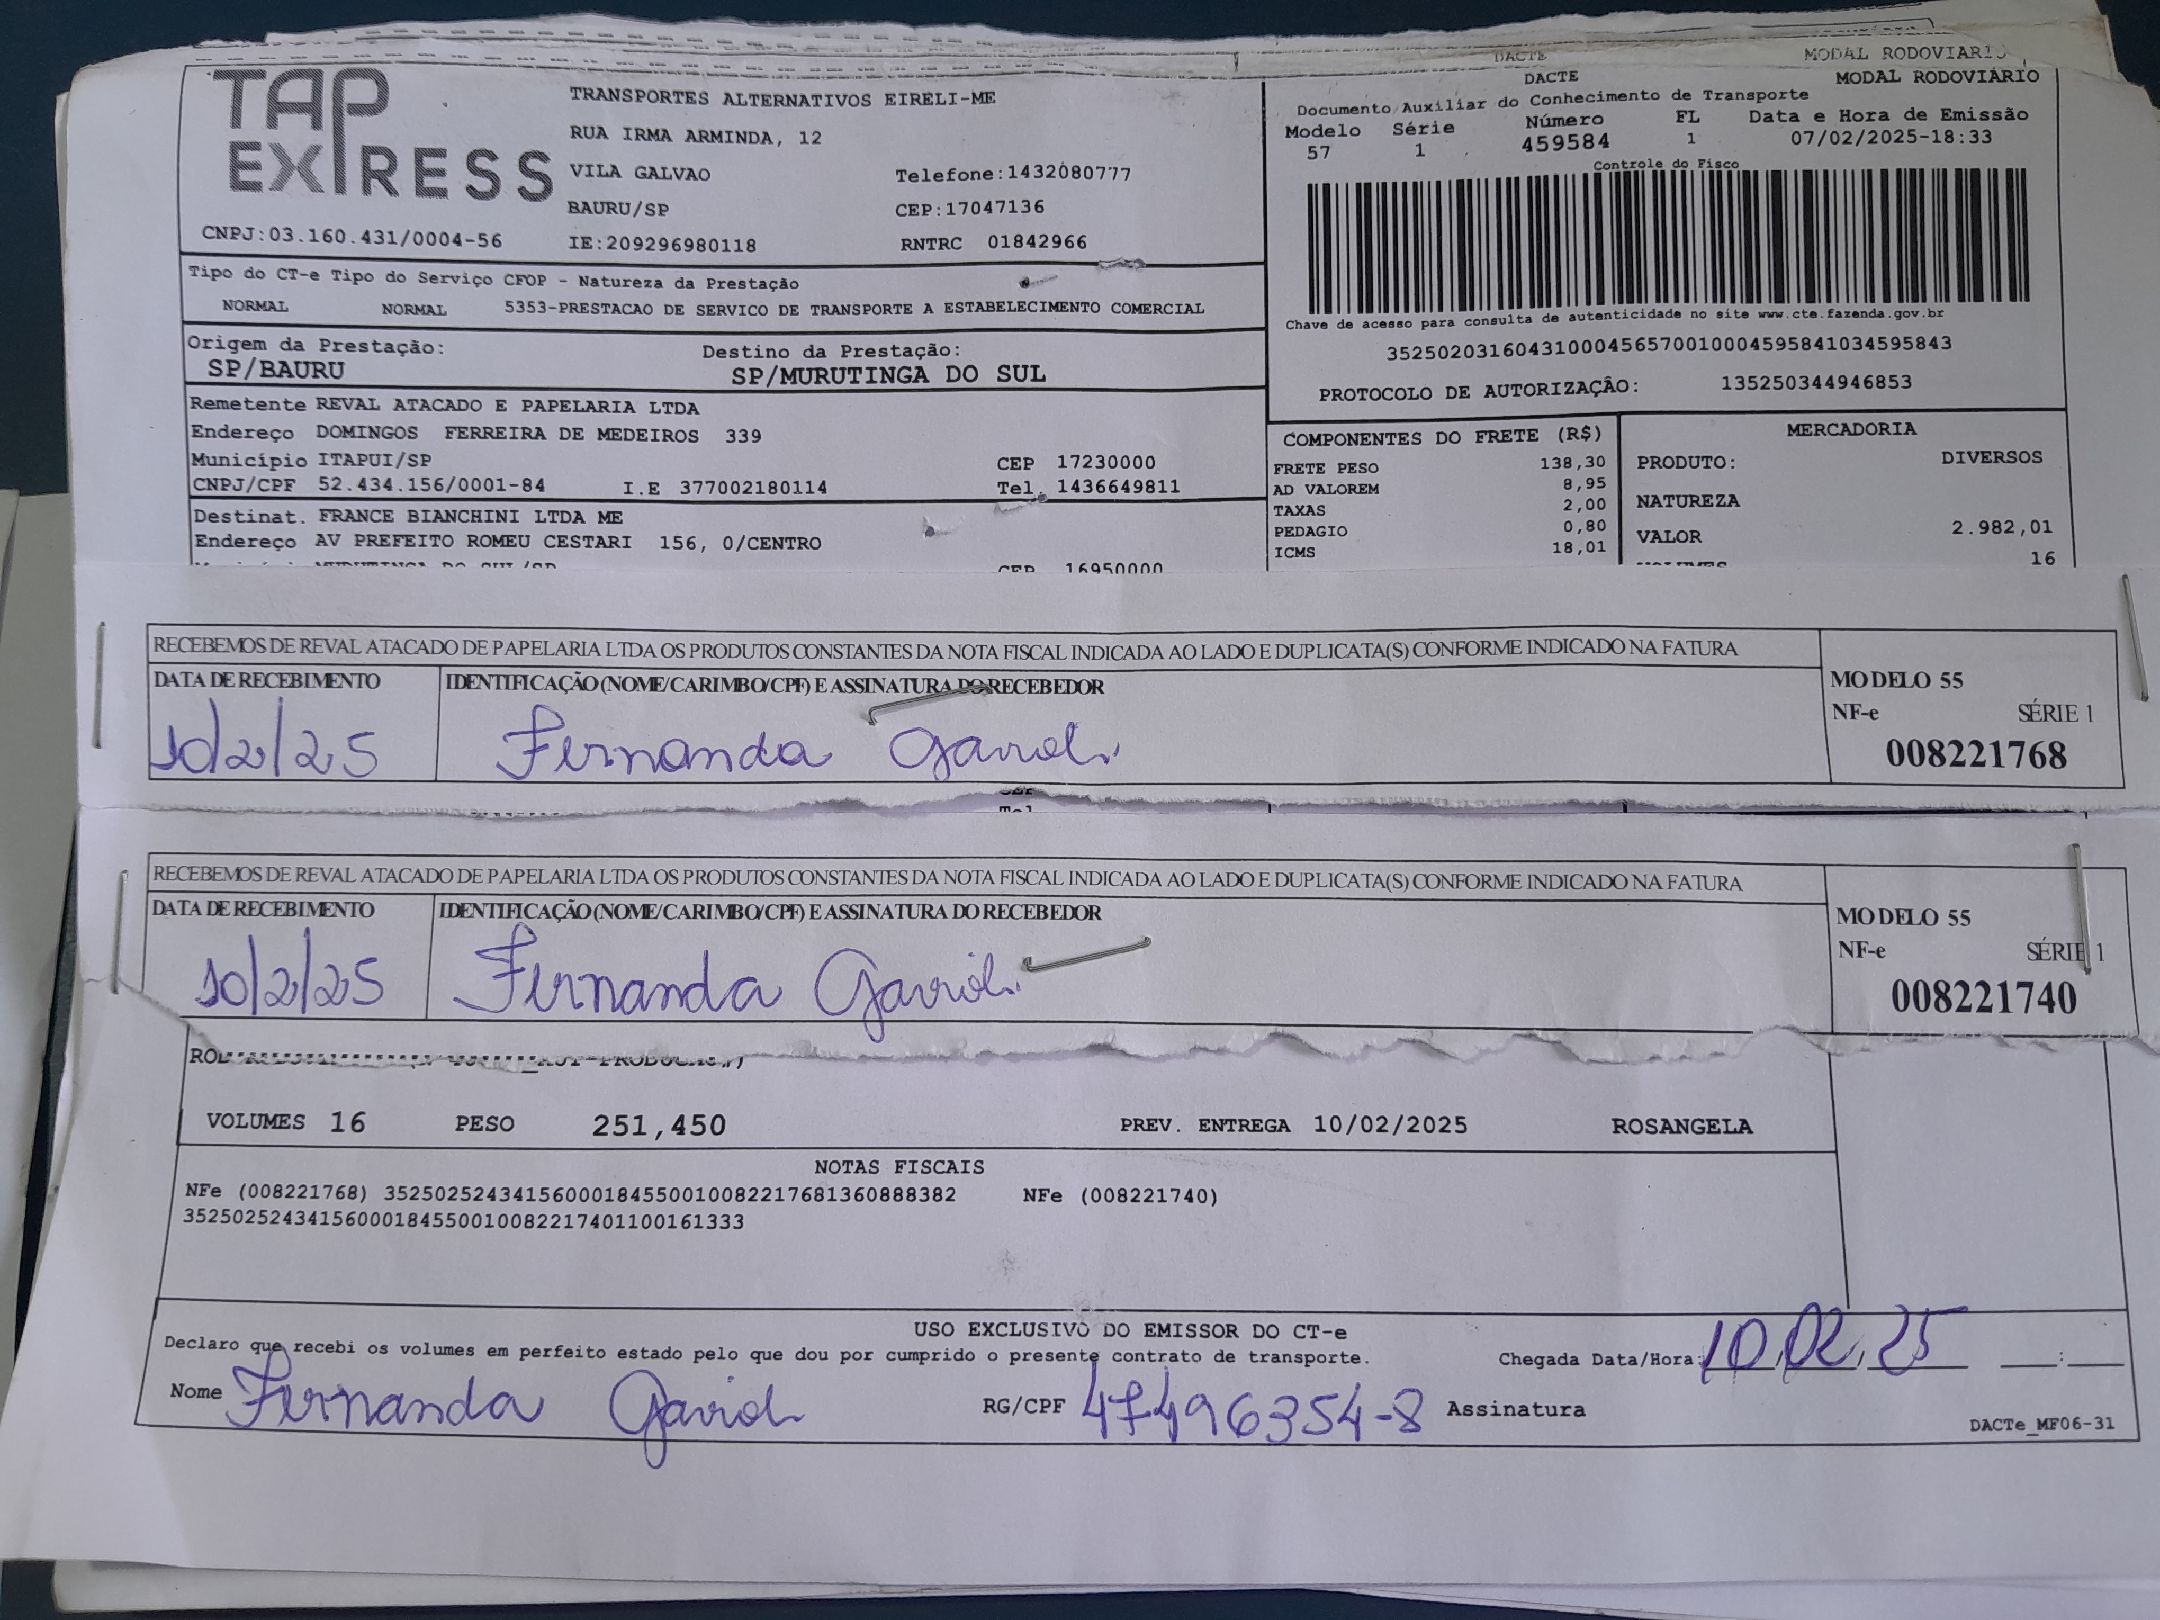 DACTE MODAL RODOVIARIO
TAP EXPRESS
TRANSPORTES ALTERNATIVOS EIRELI-ME
RUA IRMA ARMINDA, 12
VILA GALVAO Telefone:1432080777
BAURU/SP CEP:17047136
CNPJ:03.160.431/0004-56 IE:209296980118 RNTRC 01842966
DACTE MODAL RODOVIÁRIO
Documento Auxiliar do Conhecimento de Transporte
Modelo Série Número FL Data e Hora de Emissão
57 1 459584 1 07/02/2025-18:33
Controle do Fisco
Chave de acesso para consulta de autenticidade no site www.cte.fazenda.gov.br
35250203160431000456570010004595841034595843
PROTOCOLO DE AUTORIZAÇÃO: 135250344946853
Tipo do CT-e Tipo do Serviço CFOP - Natureza da Prestação
NORMAL NORMAL 5353-PRESTACAO DE SERVICO DE TRANSPORTE A ESTABELECIMENTO COMERCIAL
Origem da Prestação: Destino da Prestação:
SP/BAURU SP/MURUTINGA DO SUL
Remetente REVAL ATACADO E PAPELARIA LTDA
Endereço DOMINGOS FERREIRA DE MEDEIROS 339
Município ITAPUI/SP CEP 17230000
CNPJ/CPF 52.434.156/0001-84 I.E 377002180114 Tel. 1436649811
Destinat. FRANCE BIANCHINI LTDA ME
Endereço AV PREFEITO ROMEU CESTARI 156, 0/CENTRO
CEP 16950000
COMPONENTES DO FRETE (R$)
FRETE PESO 138,30
AD VALOREM 8,95
TAXAS 2,00
PEDAGIO 0,80
ICMS 18,01
MERCADORIA
PRODUTO: DIVERSOS
NATUREZA
VALOR 2.982,01
16
RECEBEMOS DE REVAL ATACADO DE PAPELARIA LTDA OS PRODUTOS CONSTANTES DA NOTA FISCAL INDICADA AO LADO E DUPLICATA(S) CONFORME INDICADO NA FATURA
DATA DE RECEBIMENTO IDENTIFICAÇÃO (NOME/CARIMBO/CPF) E ASSINATURA DO RECEBEDOR
10/2/25 Fernanda
MODELO 55
NF-e SÉRIE 1
008221768
RECEBEMOS DE REVAL ATACADO DE PAPELARIA LTDA OS PRODUTOS CONSTANTES DA NOTA FISCAL INDICADA AO LADO E DUPLICATA(S) CONFORME INDICADO NA FATURA
DATA DE RECEBIMENTO IDENTIFICAÇÃO (NOME/CARIMBO/CPF) E ASSINATURA DO RECEBEDOR
10/2/25 Fernanda
MODELO 55
NF-e SÉRIE 1
008221740
VOLUMES 16 PESO 251,450 PREV. ENTREGA 10/02/2025 ROSANGELA
NOTAS FISCAIS
NFe (008221768) 35250252434156000184550010082217681360888382 NFe (008221740)
35250252434156000184550010082217401100161333
USO EXCLUSIVO DO EMISSOR DO CT-e
Declaro que recebi os volumes em perfeito estado pelo que dou por cumprido o presente contrato de transporte. Chegada Data/Hora: 10,02,25 :
Nome Fernanda RG/CPF 47496354-8 Assinatura
DACTe_MF06-31